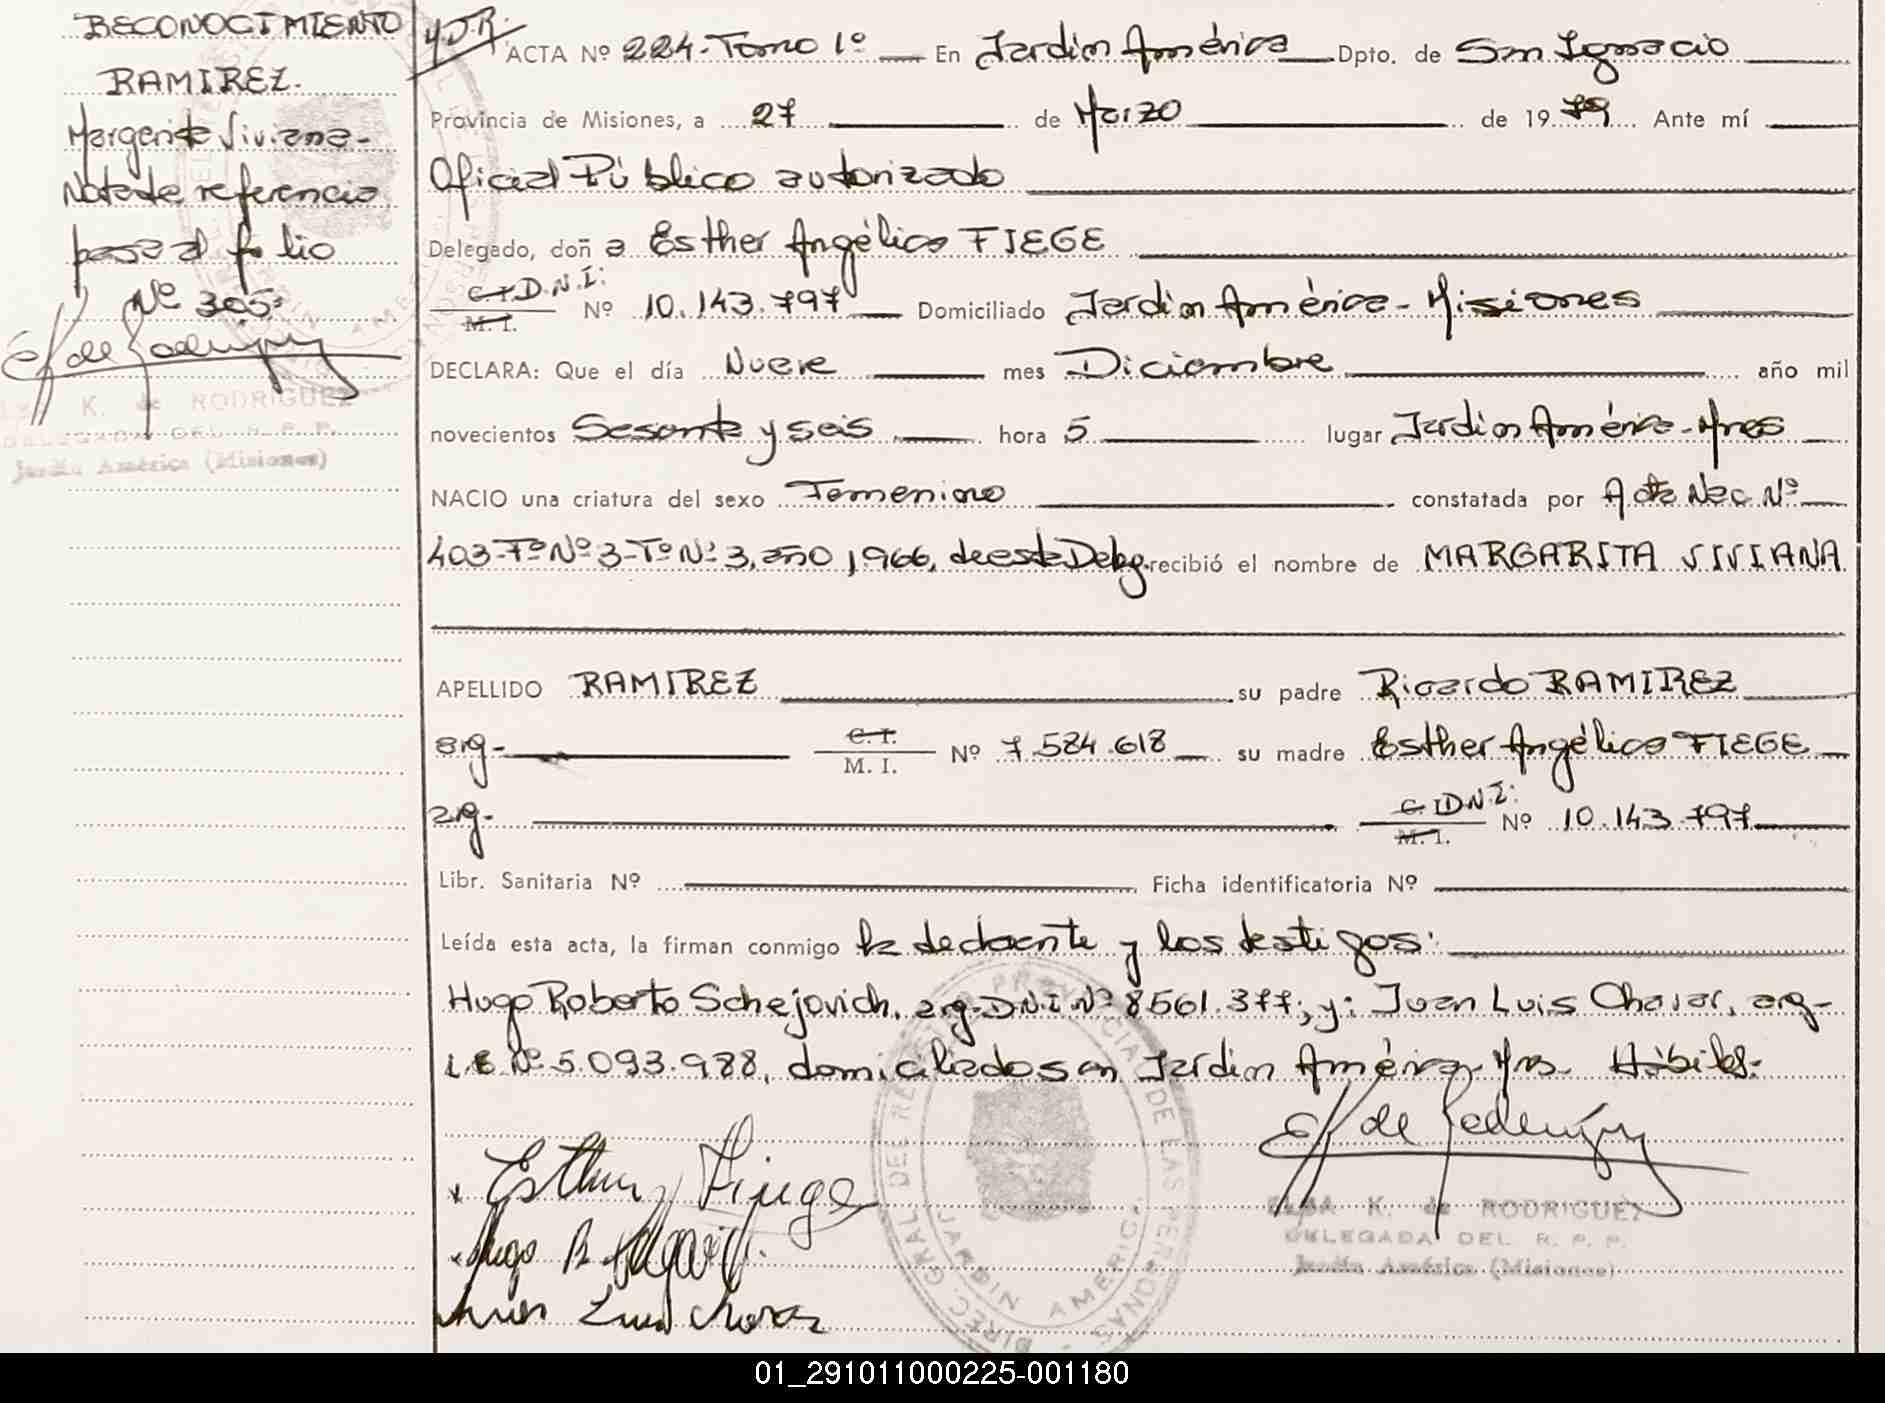 RECONOCIMIENTO
RAMIREZ.
Margarita Viviana-
Nota de referencia
pasa al folio
Nº 305-
K. de RODRIGUEZ
DELEGADA DEL R. P. P.
Jardín América (Misiones)
ACTA Nº 224-Tomo 1º En Jardin América Dpto. de San Ignacio
Provincia de Misiones, a 27 de Marzo de 1979 Ante mí
Oficial Público autorizado
Delegado, doñ a Esther Angélica FIEGE
C.I D.N.I: M. I. Nº 10.143.797 Domiciliado Jardin América-Misiones
DECLARA: Que el día Nueve mes Diciembre año mil
novecientos Sesenta y seis hora 5 lugar Jardin América-Mnes
NACIO una criatura del sexo Femenino constatada por Acta Nac. Nº
403-Fº Nº 3-Tº Nº 3, año 1966, de esta Deleg. recibió el nombre de MARGARITA VIVIANA
APELLIDO RAMIREZ su padre Ricardo RAMIREZ
arg- C. I. M. I. Nº 7.584.618 su madre Esther Angélica FIEGE
arg- C.I D.N.I: M. I. Nº 10.143.797
Libr. Sanitaria Nº Ficha identificatoria Nº
Leída esta acta, la firman conmigo la declarante y los testigos:
Hugo Roberto Schejovich, arg-D.N.I Nº 8561.377; y: Juan Luis Chavar, arg-
L.E Nº 5.093.988, domiciliados en Jardin América-Mns. Hábiles.
Esther Fiege
Hugo R.
Juan Luis Chavar
DIREC. GRAL. DEL REG. PROVINCIAL DE LAS PERSONAS
JARDIN AMERICA
ELSA K. de RODRIGUEZ
DELEGADA DEL R. P. P.
Jardín América (Misiones)
01_291011000225-001180